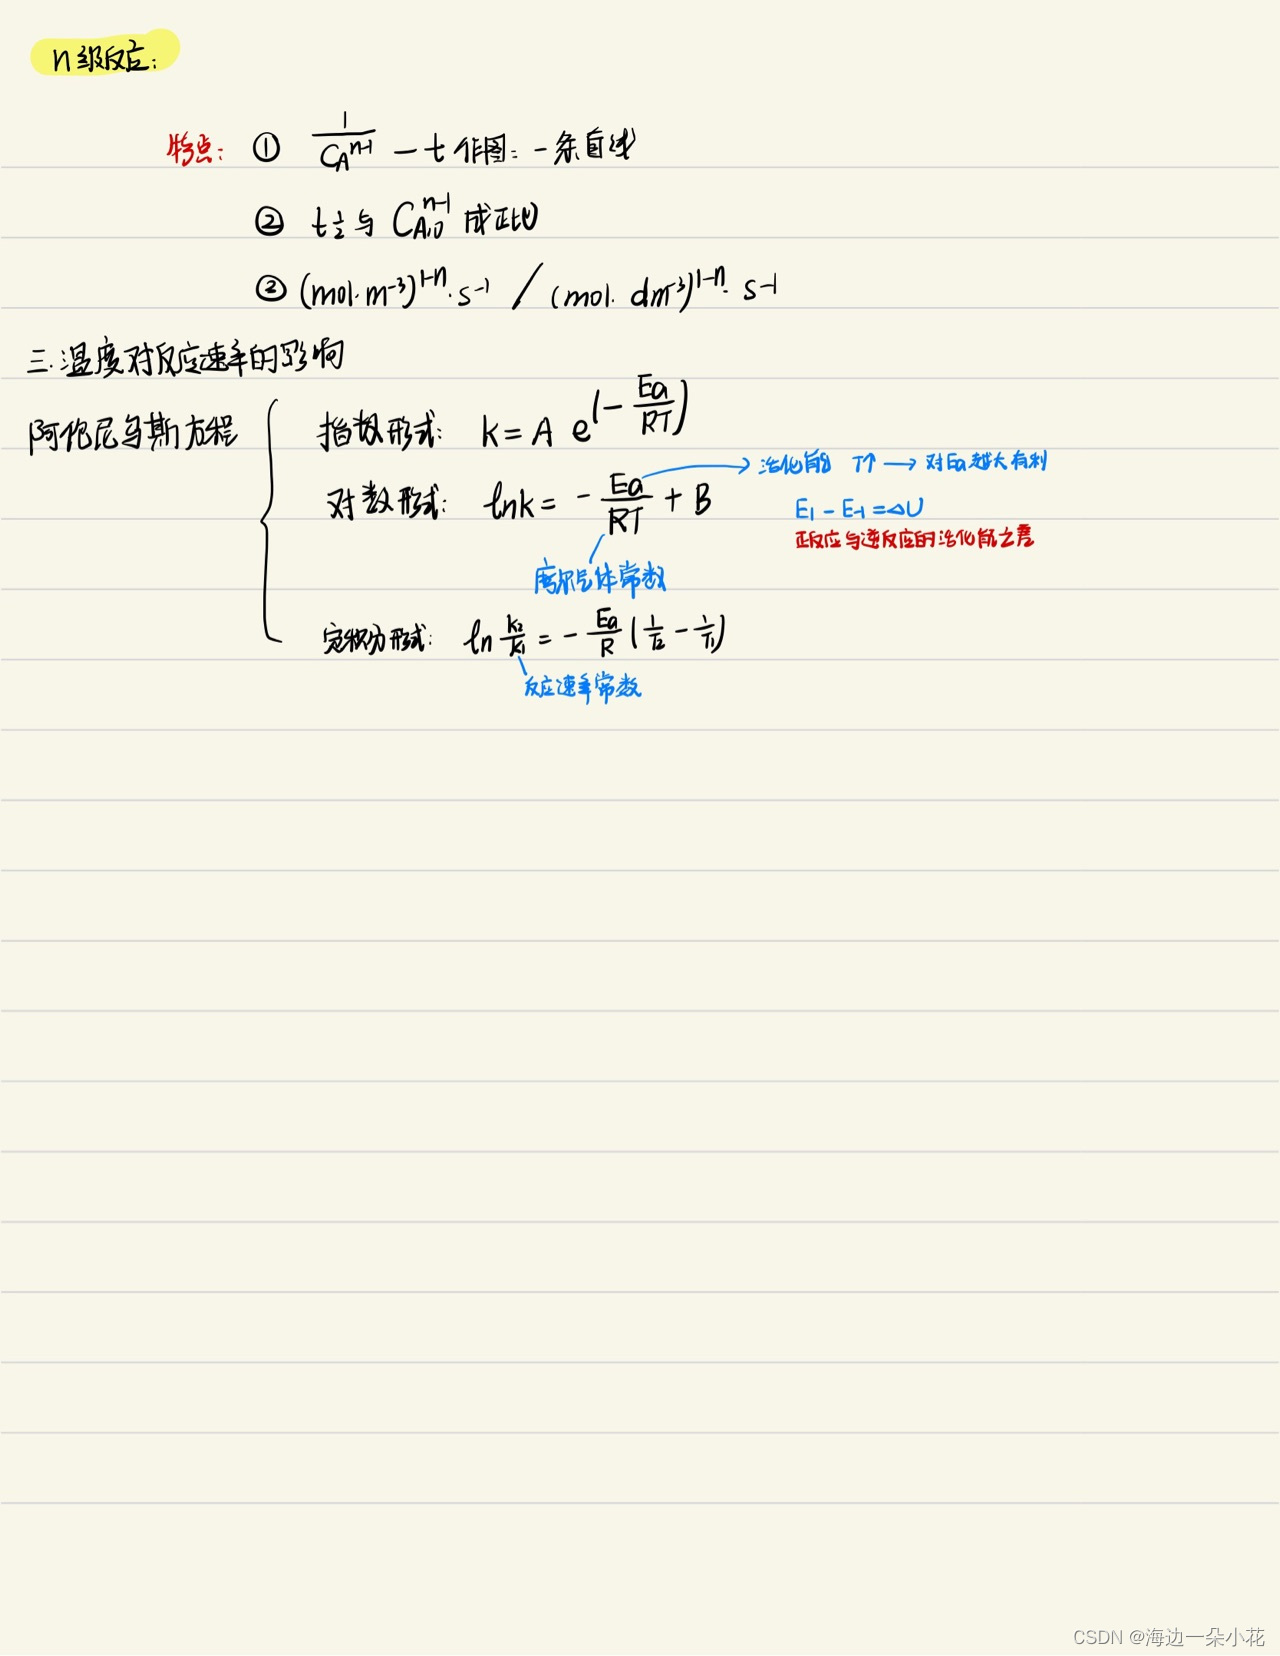 n级反应:
特点: ① 1/C_A^{n-1} — t 作图: 一条直线
② t_{1/2} 与 C_{A,0}^{n-1} 成正比
③ (mol·m⁻³)^{1-n}·s⁻¹ / (mol·dm⁻³)^{1-n}·s⁻¹
三.温度对反应速率的影响
阿伦尼乌斯方程
指数形式: k = A e^{(-Ea/RT)}
对数形式: lnk = - Ea/RT + B
活化能 T↑ → 对Ea越大有利
E₁ - E₋₁ = △U
正反应与逆反应的活化能之差
摩尔气体常数
定积分形式: ln k₂/k₁ = - Ea/R (1/T₂ - 1/T₁)
反应速率常数
CSDN @海边一朵小花